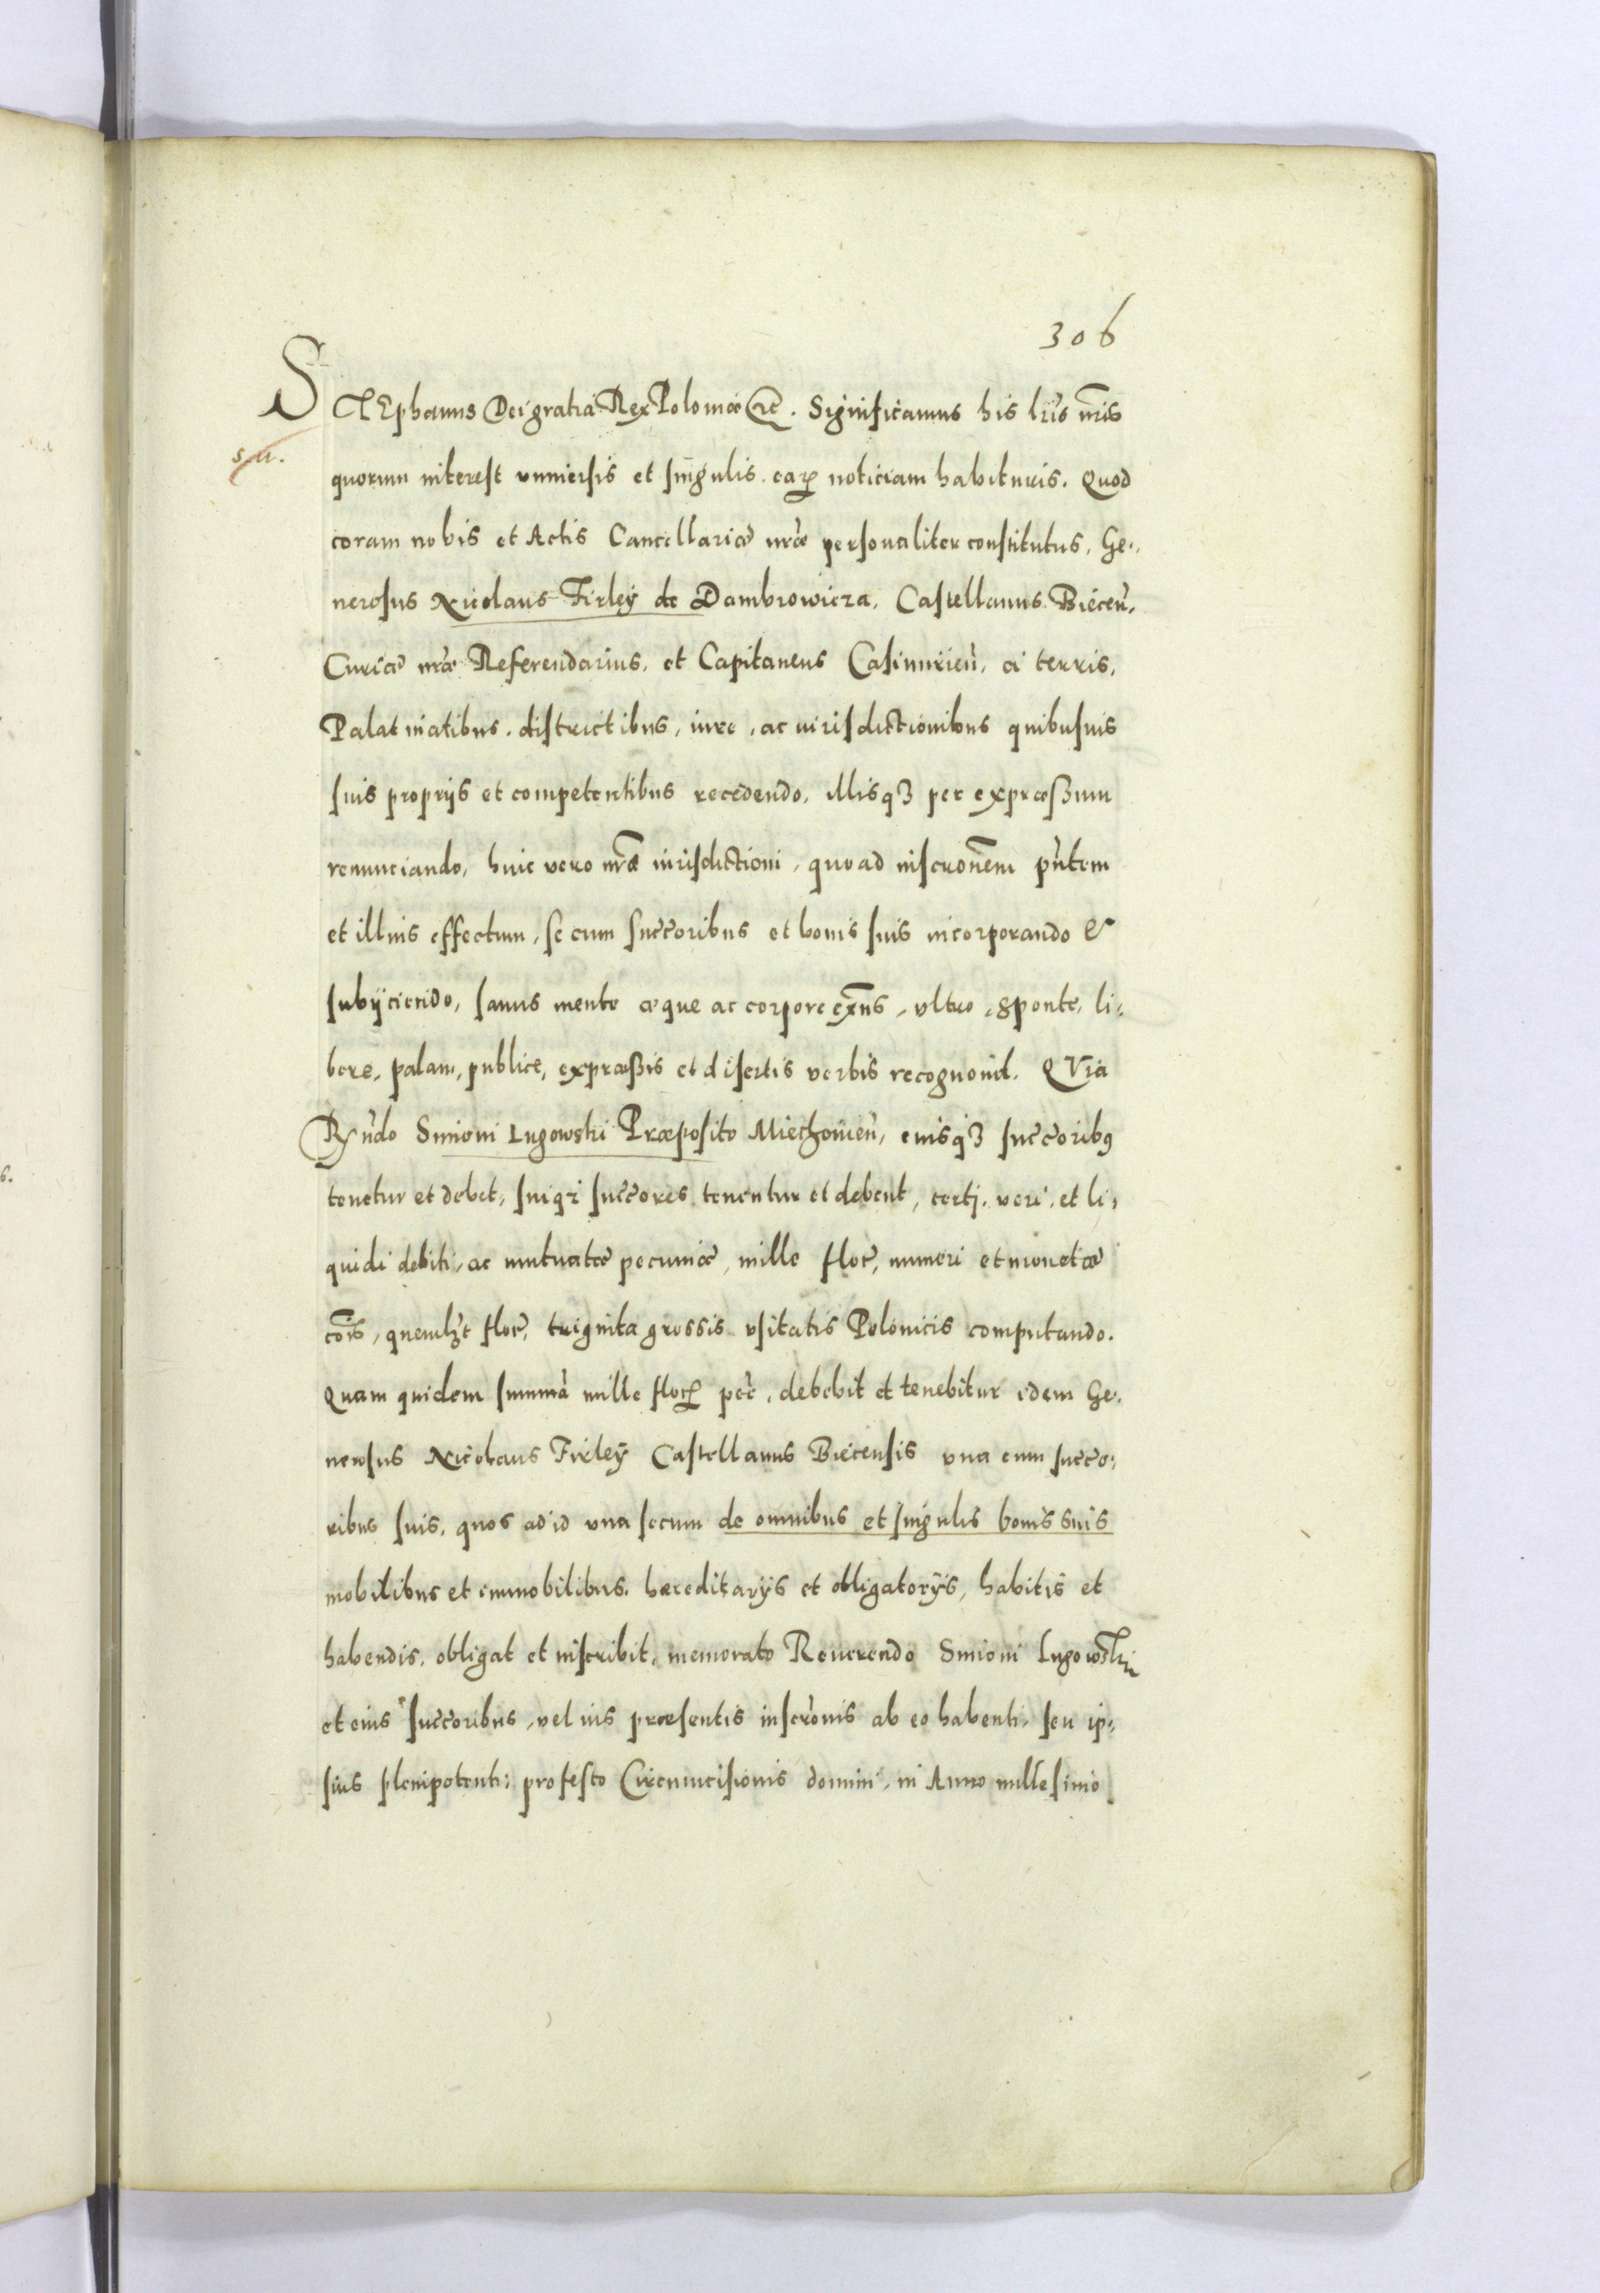 306
STEphanus Dei gratia Rex Poloniæ etc. Significamus his lr̃is nr̃is
s. u.
quorum interest vniuersis et singulis earꝝ noticiam habituris. Quod
coram nobis et Actis Cancellariæ nr̃æ personaliter constitutus, Ge-
nerosus Nicolaus Firleÿ de Dambrowicza, Castellanus Biecen̄,
Curiæ nr̃æ Referendarius, et Capitaneus Casimirien̄, a terris,
Palatinatibus, districtibus, iure, ac iurisdictionibus quibusuis
suis proprijs et competentibus recedendo, illisqꝫ per expræssum
renunciando, huic vero nr̃æ iurisdictioni, quoad inscrōnem pn̄tem
et illius effectum, se cum succ̄oribus et bonis suis incorporando &
subijciendo, sanus mente æque ac corpore exn̄s, vltro, sponte, li-
bere, palam, publice, expræssis et disertis verbis recognouit. QVia
Rn̄do Simioni Lugowski Præposito Miechouien̄, eiusqꝫ succ̄oribꝰ
tenetur et debet, suiqꝫ succ̄ores tenentur et debent, certj, veri, et li-
quidi debiti, ac mutuatæ pecuniæ, mille flor̄, numeri et monetæ
cōis, quemlꝫt flor̄, triginta grossis vsitatis Polonicis computando.
Quam quidem summā mille florꝝ pec̄, debebit et tenebitur idem Ge-
nerosus Nicolaus Firleÿ Castellanus Biecensis vna cum succo-
ribus suis, quos ad id vna secum de omnibus et singulis bonis suis
mobilibus et immobilibus, hæreditarijs et obligatorijs, habitis et
habendis, obligat et inscribit, memorato Reuerendo Simioni Lugowski
et eius succ̄oribus, vel ius præsentis inscrōnis ab eo habenti, seu ip-
sius plenipotenti: pro festo Circumcisionis domini, in Anno millesimo